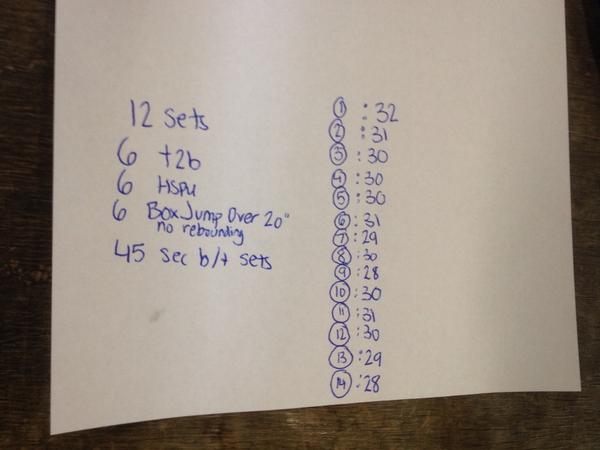 12 sets
6 t2b
6 HSPU
6 Box Jump Over 20"
no rebounding
45 sec b/t sets
① :32
② :31
③ :30
④ :30
⑤ :30
⑥ :31
⑦ :29
⑧ :30
⑨ :28
⑩ :30
⑪ :31
⑫ :30
⑬ :29
⑭ :28